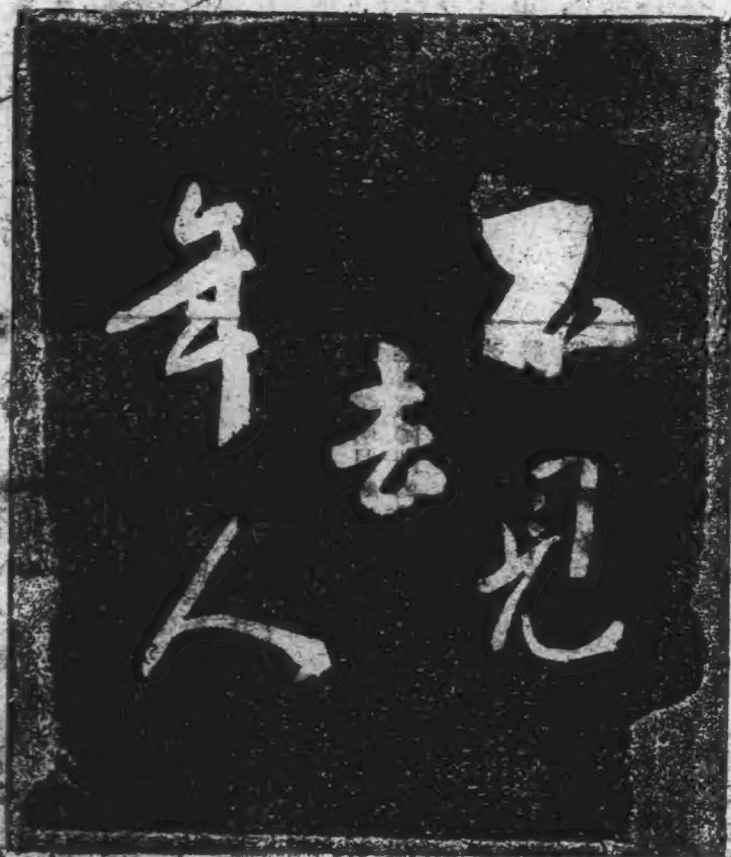 不见
去
年人